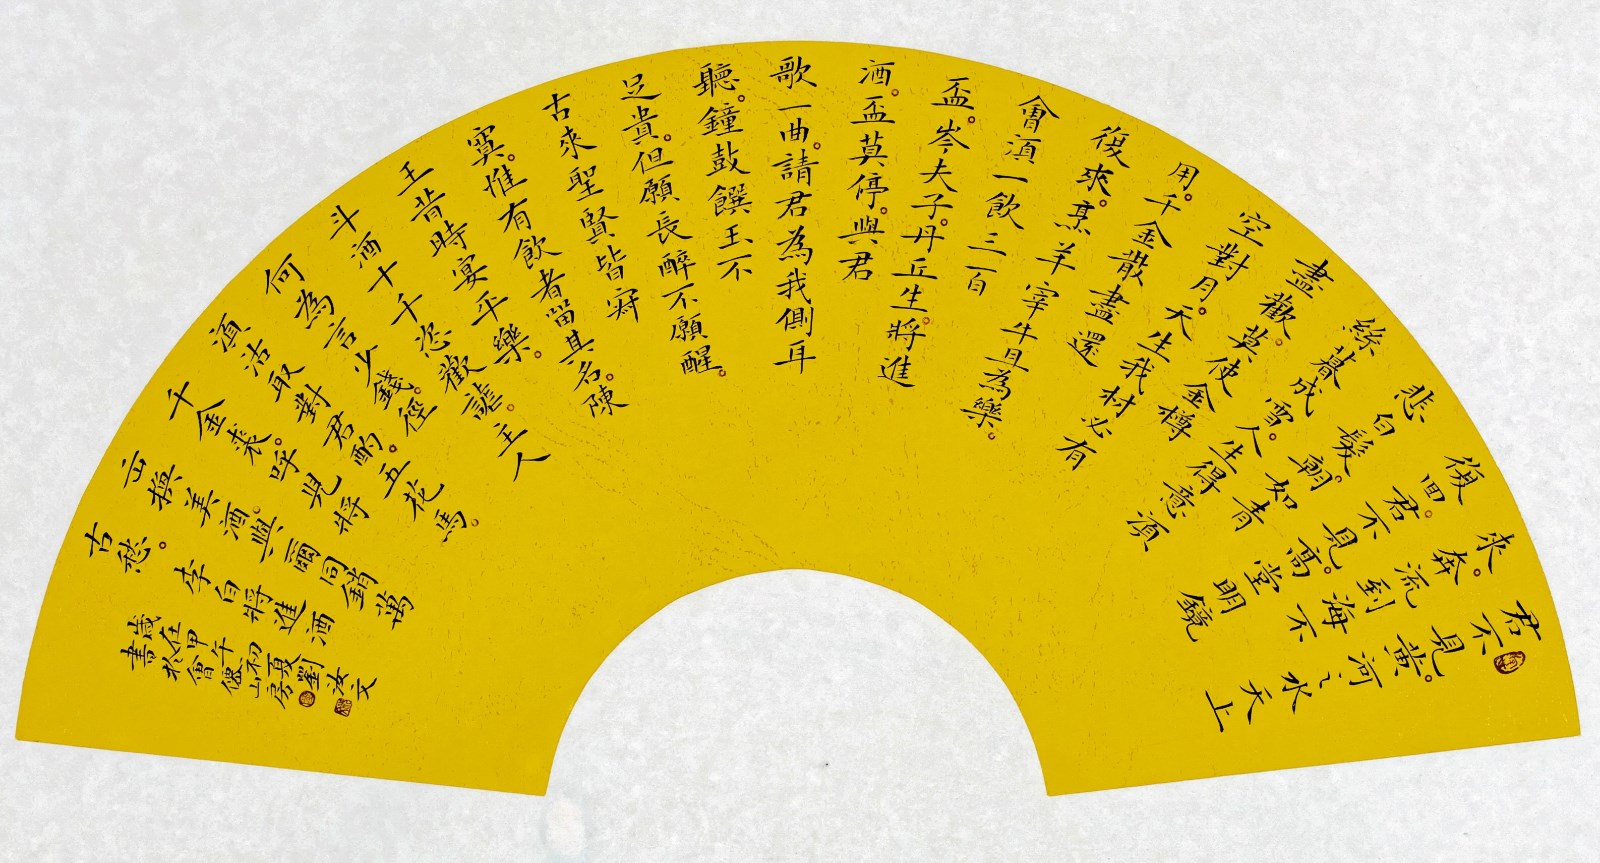 君不見黃河之水天上
來。奔流到海不
復回。君不見。高堂明鏡
悲白髮。朝如青
絲暮成雪。人生得意須
盡歡。莫使金樽
空對月。天生我材必有
用。千金散盡還
復來。烹羊宰牛且為樂。
會須一飲三百
盃。岑夫子。丹丘生。將進
酒。盃莫停。與君
歌一曲。請君為我側耳
聽。鐘鼓饌玉不
足貴。但願長醉不願醒。
古來聖賢皆寂
寞。惟有飲者留其名。陳
王昔時宴平樂。
斗酒十千恣歡謔。主人
何為言少錢。徑
須沽取對君酌。五花馬。
千金裘。呼兒將
出換美酒。與爾同銷萬
古愁。李白將進酒
歲在甲午初夏劉汝文
書於會僊山房